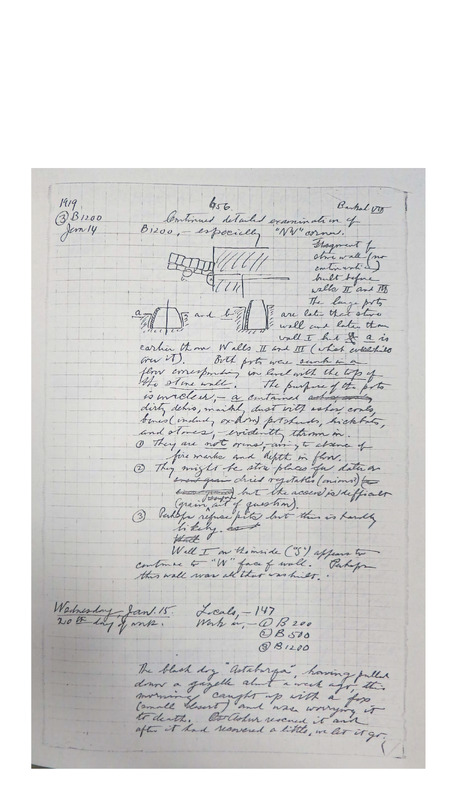 1919
656
Barkal VIII
③ B1200
Jan 14
Continued detailed examination of
B1200, – especially "NW" corner.
Fragment of
stone wall (no
built before
walls II and III
The large pots
a and b are later than stone
wall and later than
wall I but a is
earlier than Walls II and III (what
over it). Both pots were sunk in a
floor corresponding in level with the top of
the stone wall. The purpose of the pots
is unclear, – a contained
dirty debris, mainly dust with ashes, coals,
bones (including ox-horn) potsherds, brickbats,
and stones, – evidently thrown in.
① They are not ovens, owing to absence of
fire marks and depth in floor.
② They might be store places for dates or
dried vegetables (onions)
but the access is difficult
(grain, out of question).
③ Perhaps refuse pits but this is hardly
likely
Wall I on the inside ("S") appears to
continue to "W" face of wall. Perhaps
this wall was all that was built.
Wednesday Jan. 15
Locals, – 147
20th day of work.
Work in, – ① B 200
② B 500
③ B 1200
The black dog having pulled
down a gazelle about a week ago, this
morning caught up with a fox
(small desert) and was worrying it
to death. rescued it and
after it had recovered a little, we let it go.